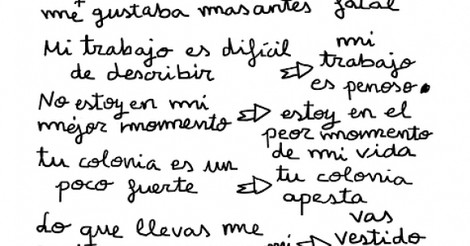 me gustaba mas antes fatal
Mi trabajo es difícil
de describir
mi
trabajo
es penoso.
No estoy en mi
mejor momento
estoy en el
peor momento
de mi vida
tu colonia es un
poco fuerte
tu colonia
apesta
Lo que llevas me
vas
vestido